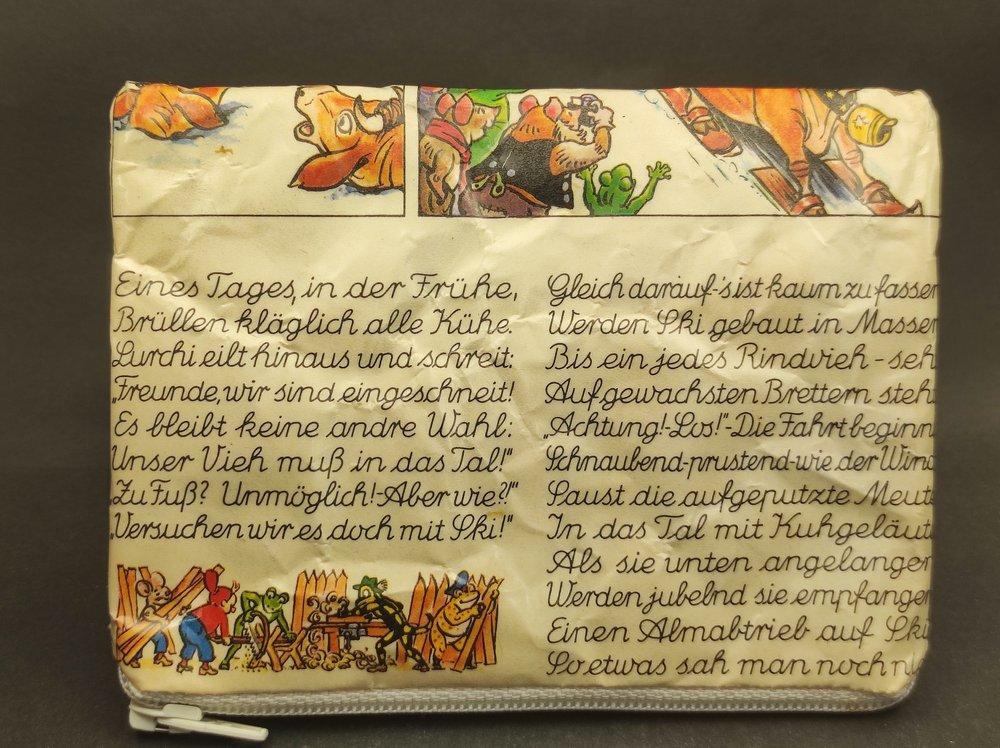 Eines Tages, in der Frühe,
Brüllen kläglich alle Kühe.
Lurchi eilt hinaus und schreit:
„Freunde, wir sind eingeschneit!
Es bleibt keine andre Wahl:
Unser Vieh muß in das Tal!"
„Zu Fuß? Unmöglich!-Aber wie?!"
„Versuchen wir es doch mit Ski!"
Gleich darauf-'s ist kaum zu fassen
Werden Ski gebaut in Massen
Bis ein jedes Rindvieh - seh
Auf gewachsten Brettern steh
„Achtung!-Los!"-Die Fahrt beginn
Schnaubend-prustend-wie der Wind
Saust die aufgeputzte Meut
In das Tal mit Kuhgeläut
Als sie unten angelangen
Werden jubelnd sie empfangen
Einen Almabtrieb auf Ski
So etwas sah man noch